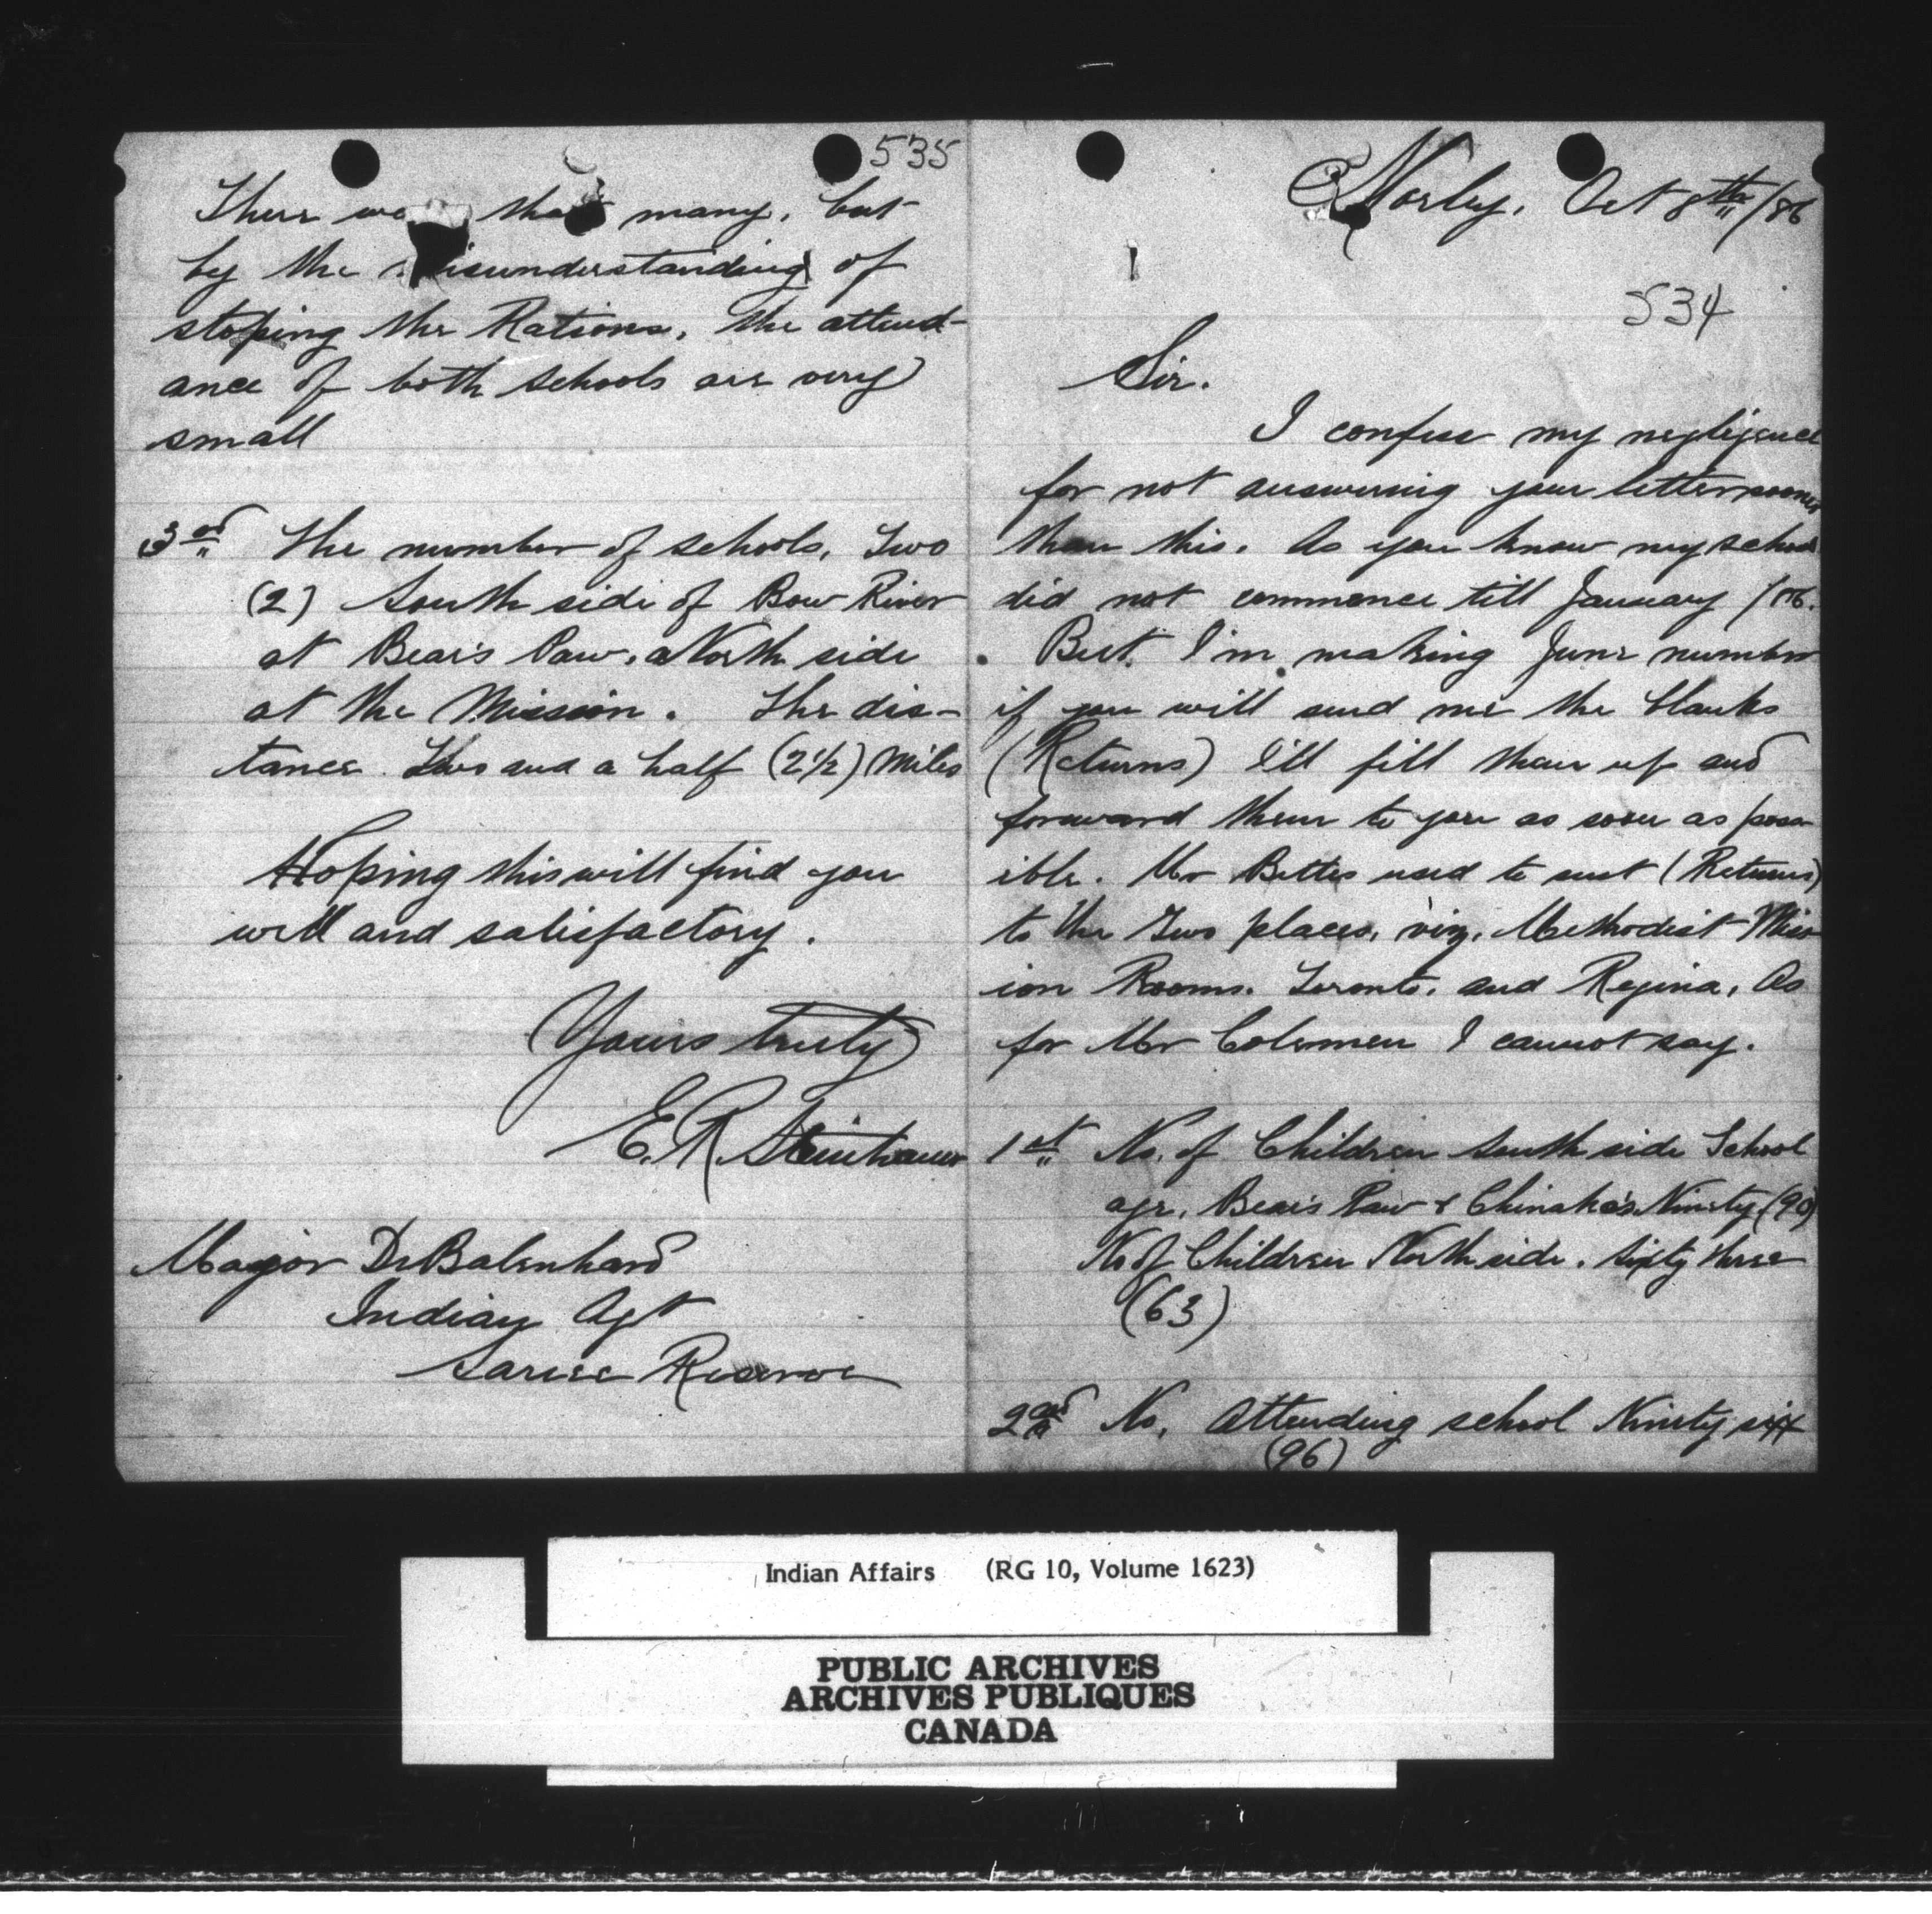 Morley, Oct 8th/86
534
Sir.
I confess my negligence
for not answering your letter sooner
than this. As you know my school
did not commence till January /86.
But I'm making June number
if you will send me the blanks
(Returns) I'll fill them up and
forward them to you as soon as poss-
ible. Mr Bettes used to sent (Returns)
to the Two places, viz, Methodist Miss
ion Rooms. Toronto. and Regina, As
for Mr Colemen I cannot say.
1st No. of Children South side School
age, Bear's Paw & Ninety (90)
No of Children North side. Sixty three
(63)
2nd No. Attending school Ninety six
(96)
535
There that many, but
by the misunderstanding of
stoping the Rations, the attend-
ance of both schools are very
small
3rd The number of schools, Two
(2) South side of Bow River
at Bear's Paw, North side
at the Mission. The dis-
tance. Two and a half (2 1/2) Miles
Hoping this will find you
well and satisfactory.
Yours truly
E. R. Steinhauer
Major DeBalenhard
Indian Agt
Sarcee Reserve
Indian Affairs (RG 10, Volume 1623)
PUBLIC ARCHIVES
ARCHIVES PUBLIQUES
CANADA